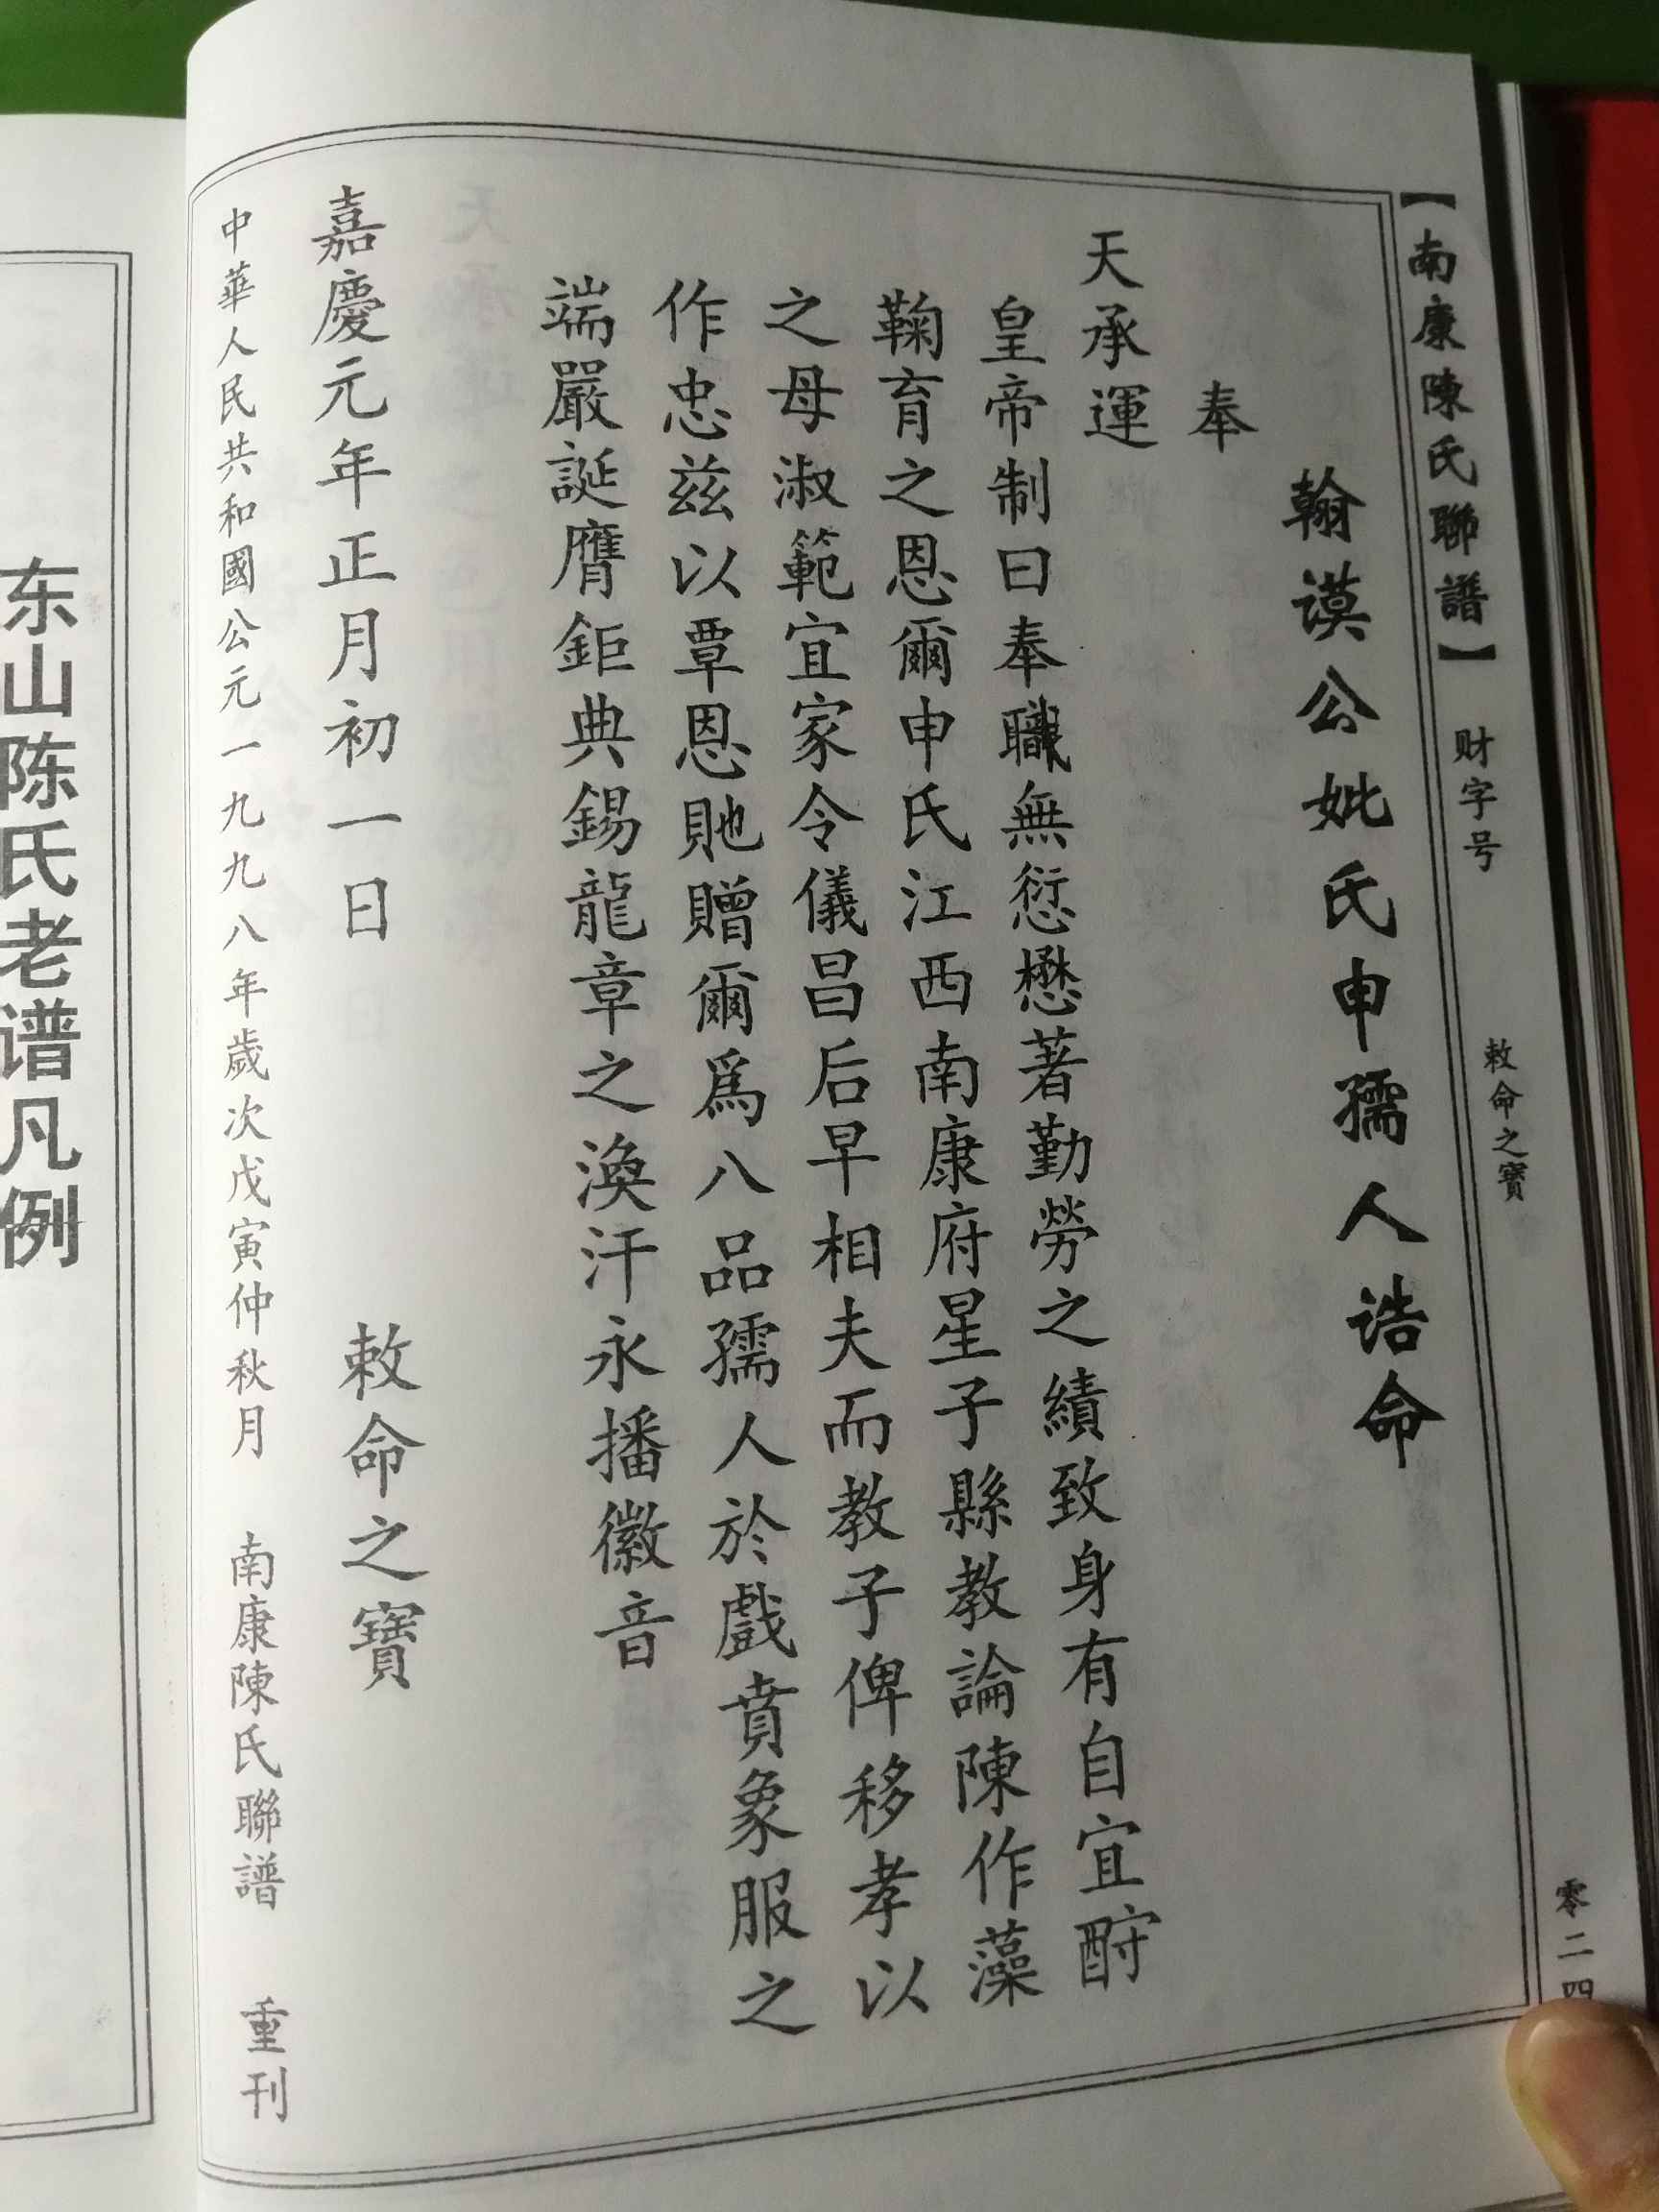 【南康陳氏聯譜】 财字号 敕命之寶 零二四
翰謨公妣氏申孺人诰命
奉
天承運
皇帝制曰奉職無愆懋著勤勞之績致身有自宜酧
鞠育之恩爾申氏江西南康府星子縣教論陳作藻
之母淑範宜家令儀昌后早相夫而教子俾移孝以
作忠兹以覃恩貤贈爾爲八品孺人於戲賁象服之
端嚴誕膺鉅典錫龍章之渙汗永播徽音
嘉慶元年正月初一日 敕命之寶
中華人民共和國公元一九九八年歲次戊寅仲秋月 南康陳氏聯譜 重刊
东山陈氏老谱凡例